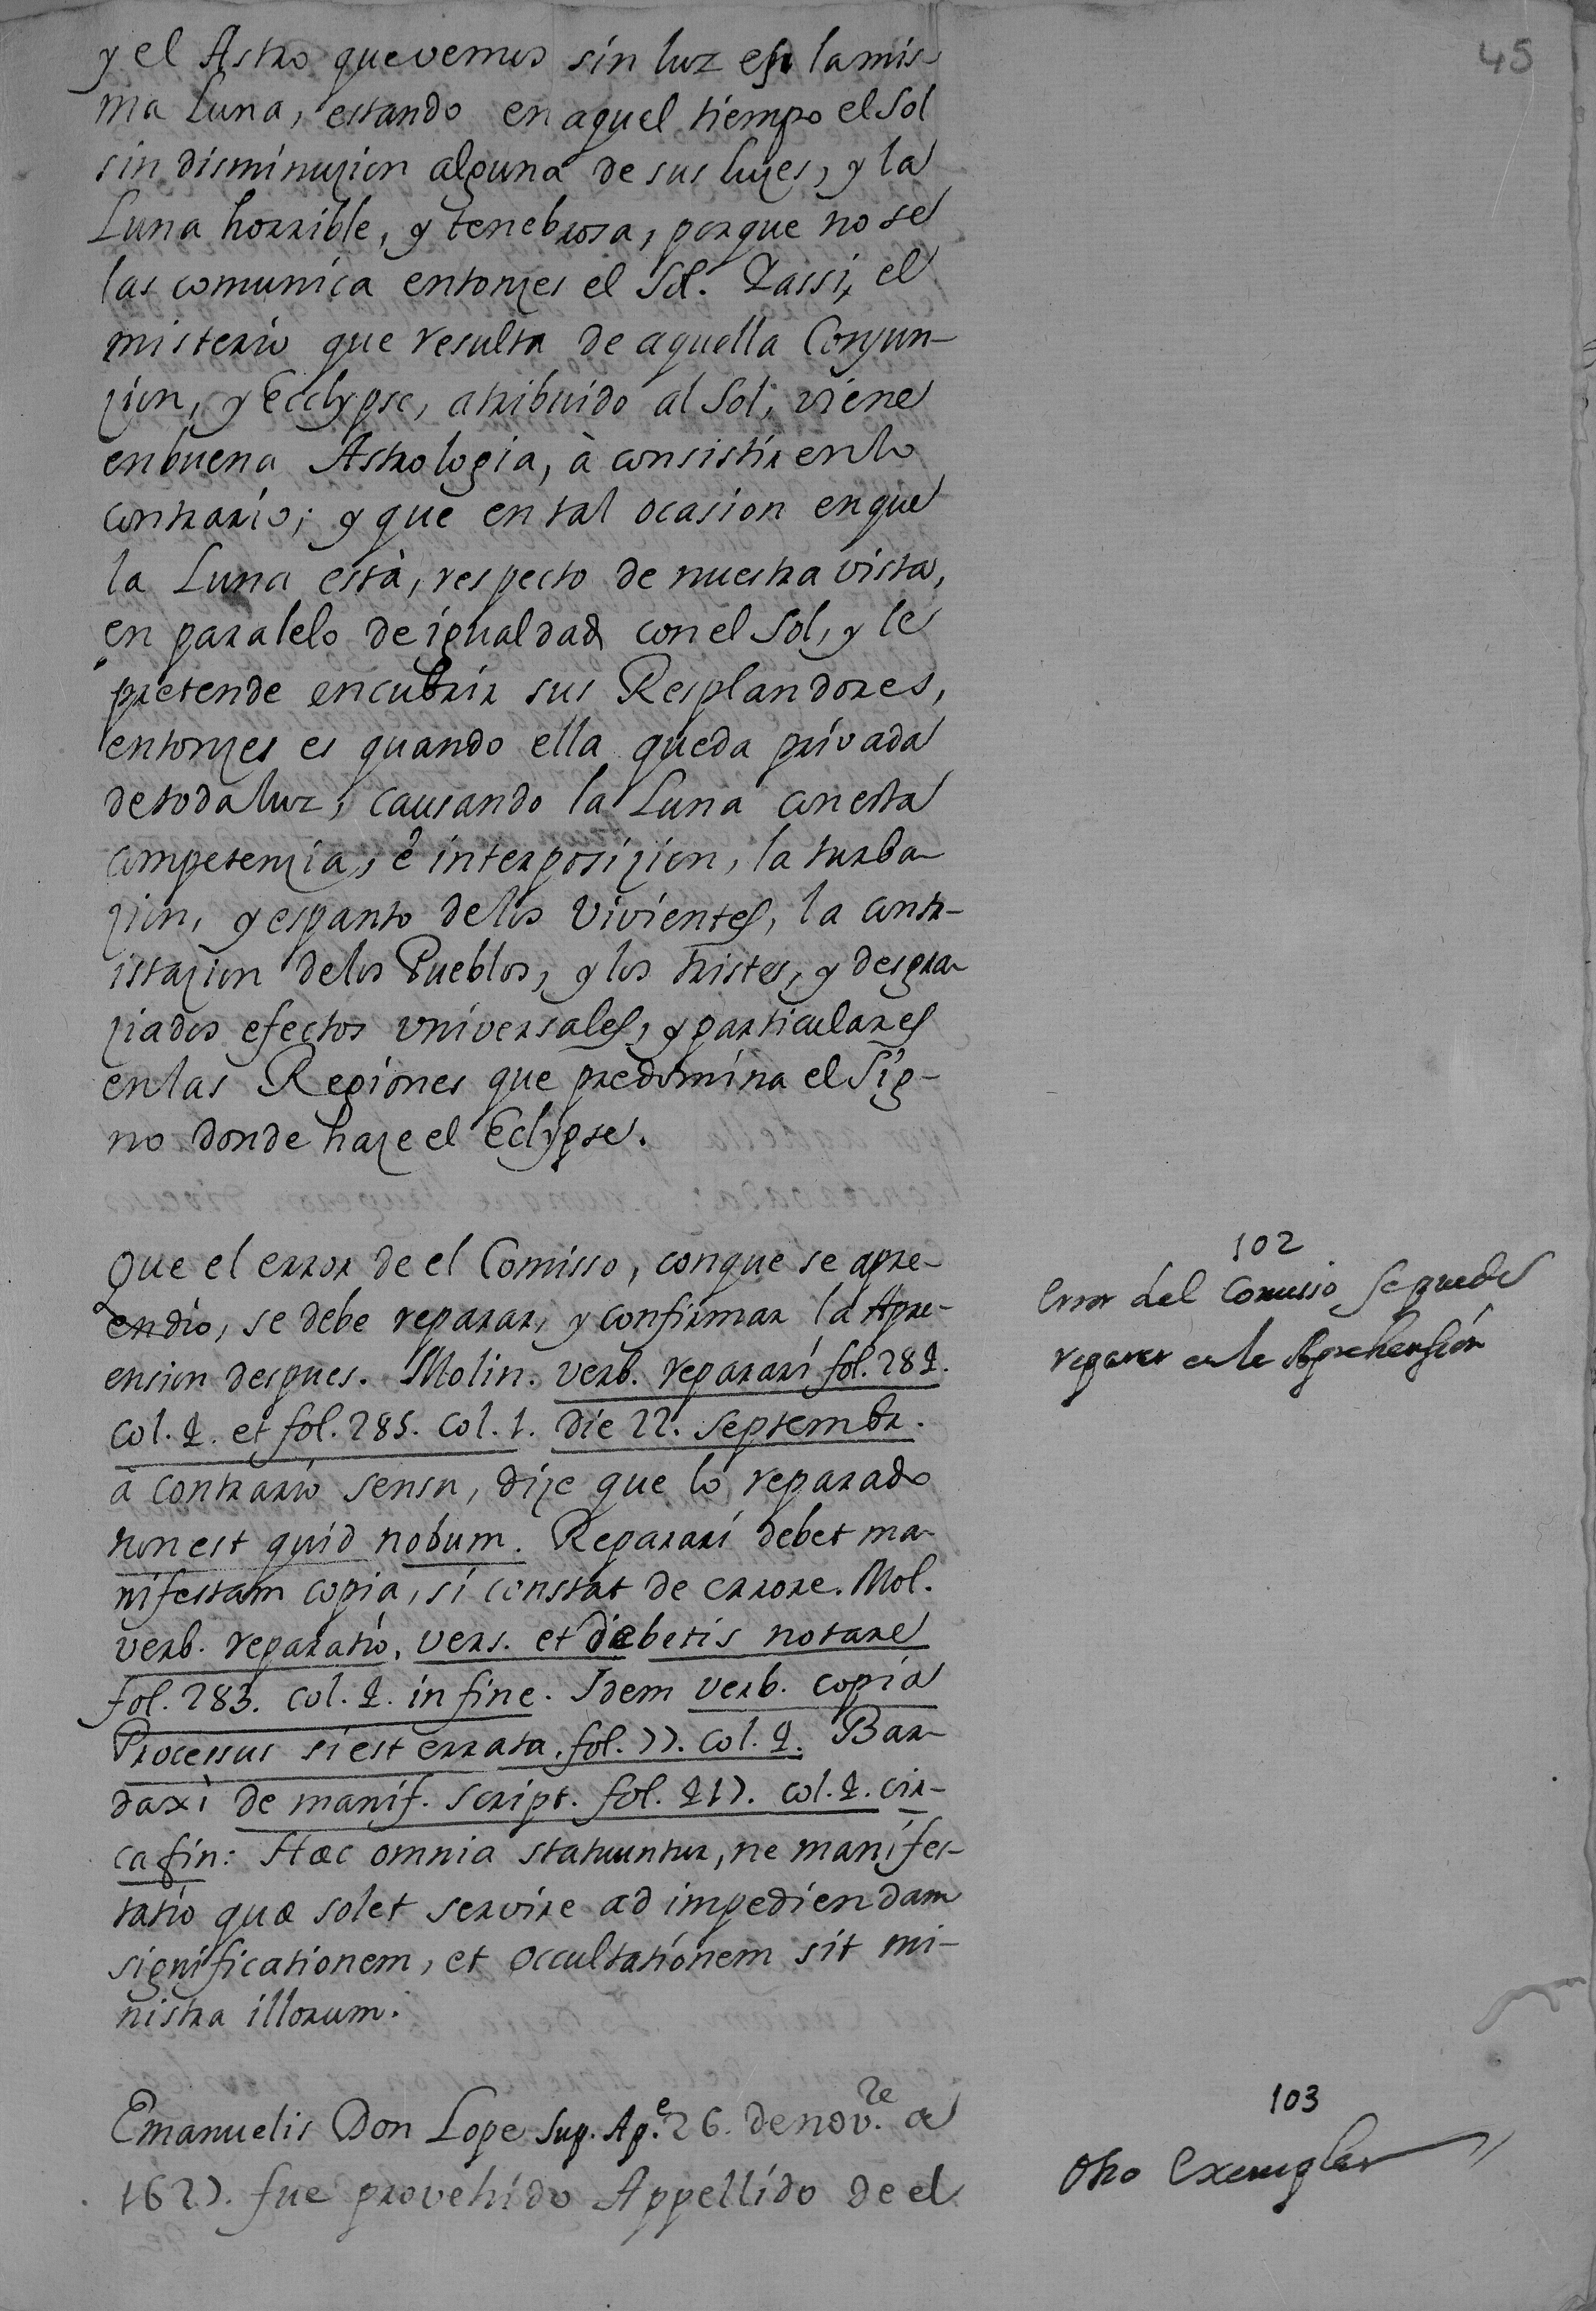 45
y el Astro que vemos sin luz es la mis-
ma Luna, estando en aquel tiempo el Sol
sin disminuzion alguna de sus luzes, y la
Luna horrible, y tenebrosa, porque no se
las comunica entonzes el Sol. I assi, el
misterio que resulta de aquella Conjun-
zion, y Ecclypse, atribuido al Sol, viene
en buena Astrologia, à consistir en lo
contrario; y que en tal ocasion en que
la Luna està, respecto de nuestra vista,
en paralelo de igualdad con el Sol, y le
pretende encubrir sus Resplandores,
entonzes es quando ella queda privada
de toda luz, causando la Luna con esta
competenzia, è interposizion, la turba-
zion, y espanto de los Vivientes, la contr-
istazion de los Pueblos, y los tristes, y desgra-
ziados efectos universales, y particulares
en las Regiones que predomina el Sig-
no donde haze el Eclypse.
Que el error de el Comisso, con que se apre-
endio, se debe reparar, y confirmar la Apre-
ension despues. Molin. verb. reparari fol. 282.
col. 2. et fol. 285. col. 1. die 22. Septembr.
à contrario sensu, dize que lo reparado
non est quid nobum. Reparari debet ma-
nifestam copia, si constat de errore. Mol.
verb. reparatio, vers. et debetis notare
fol. 283. col. 2. in fine. Idem verb. copia
Processus si est errata. fol. 77. col. 2. Bar-
daxi de manif. script. fol. 217. col. 2. cir-
ca fin: Hæc omnia statuuntur, ne manifes-
tatio quæ solet servire ad impediendam
significationem, et occultationem sit mi-
nistra illorum.
102
Error del Comisso se puede
reparar en la Aprehension
Emanuelis Don Lope sup. Ap.e 26. de nov.re a
1627. fue provehido Appellido de el
103
Otro Exemplar